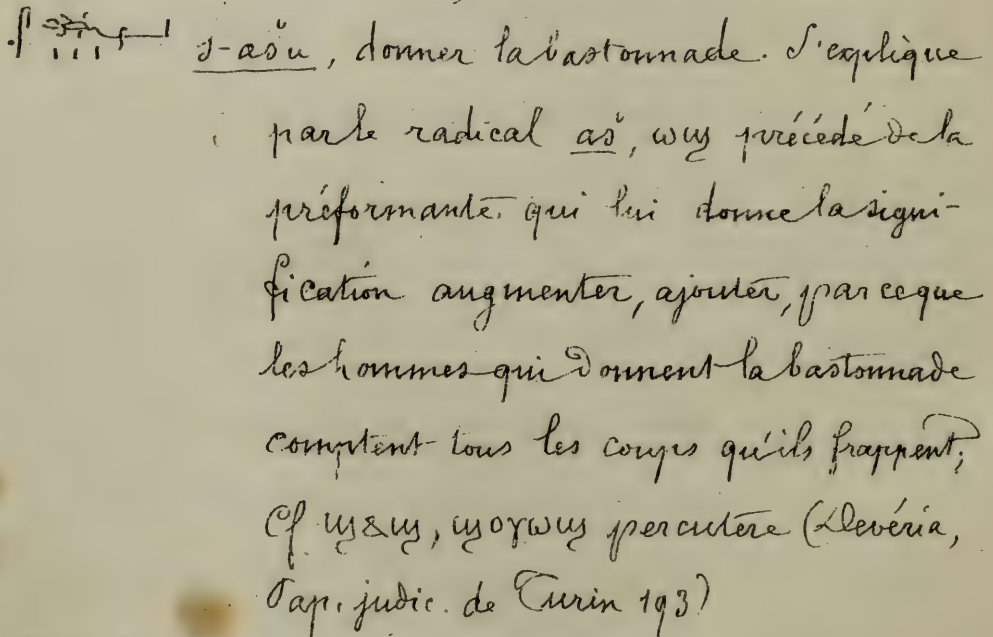 s-ašu, donner la bastonnade. S'explique
par le radical aš, ⲱϣ précédé de la
préformante qui lui donne la signi-
fication augmenter, ajouter, parceque
les hommes qui donnent la bastonnade
comptent tous les coups qu'ils frappent;
Cf ϣⲁϣ, ϣⲟⲩⲱϣ percutere (Devéria,
Pap. judic. de Turin 193)